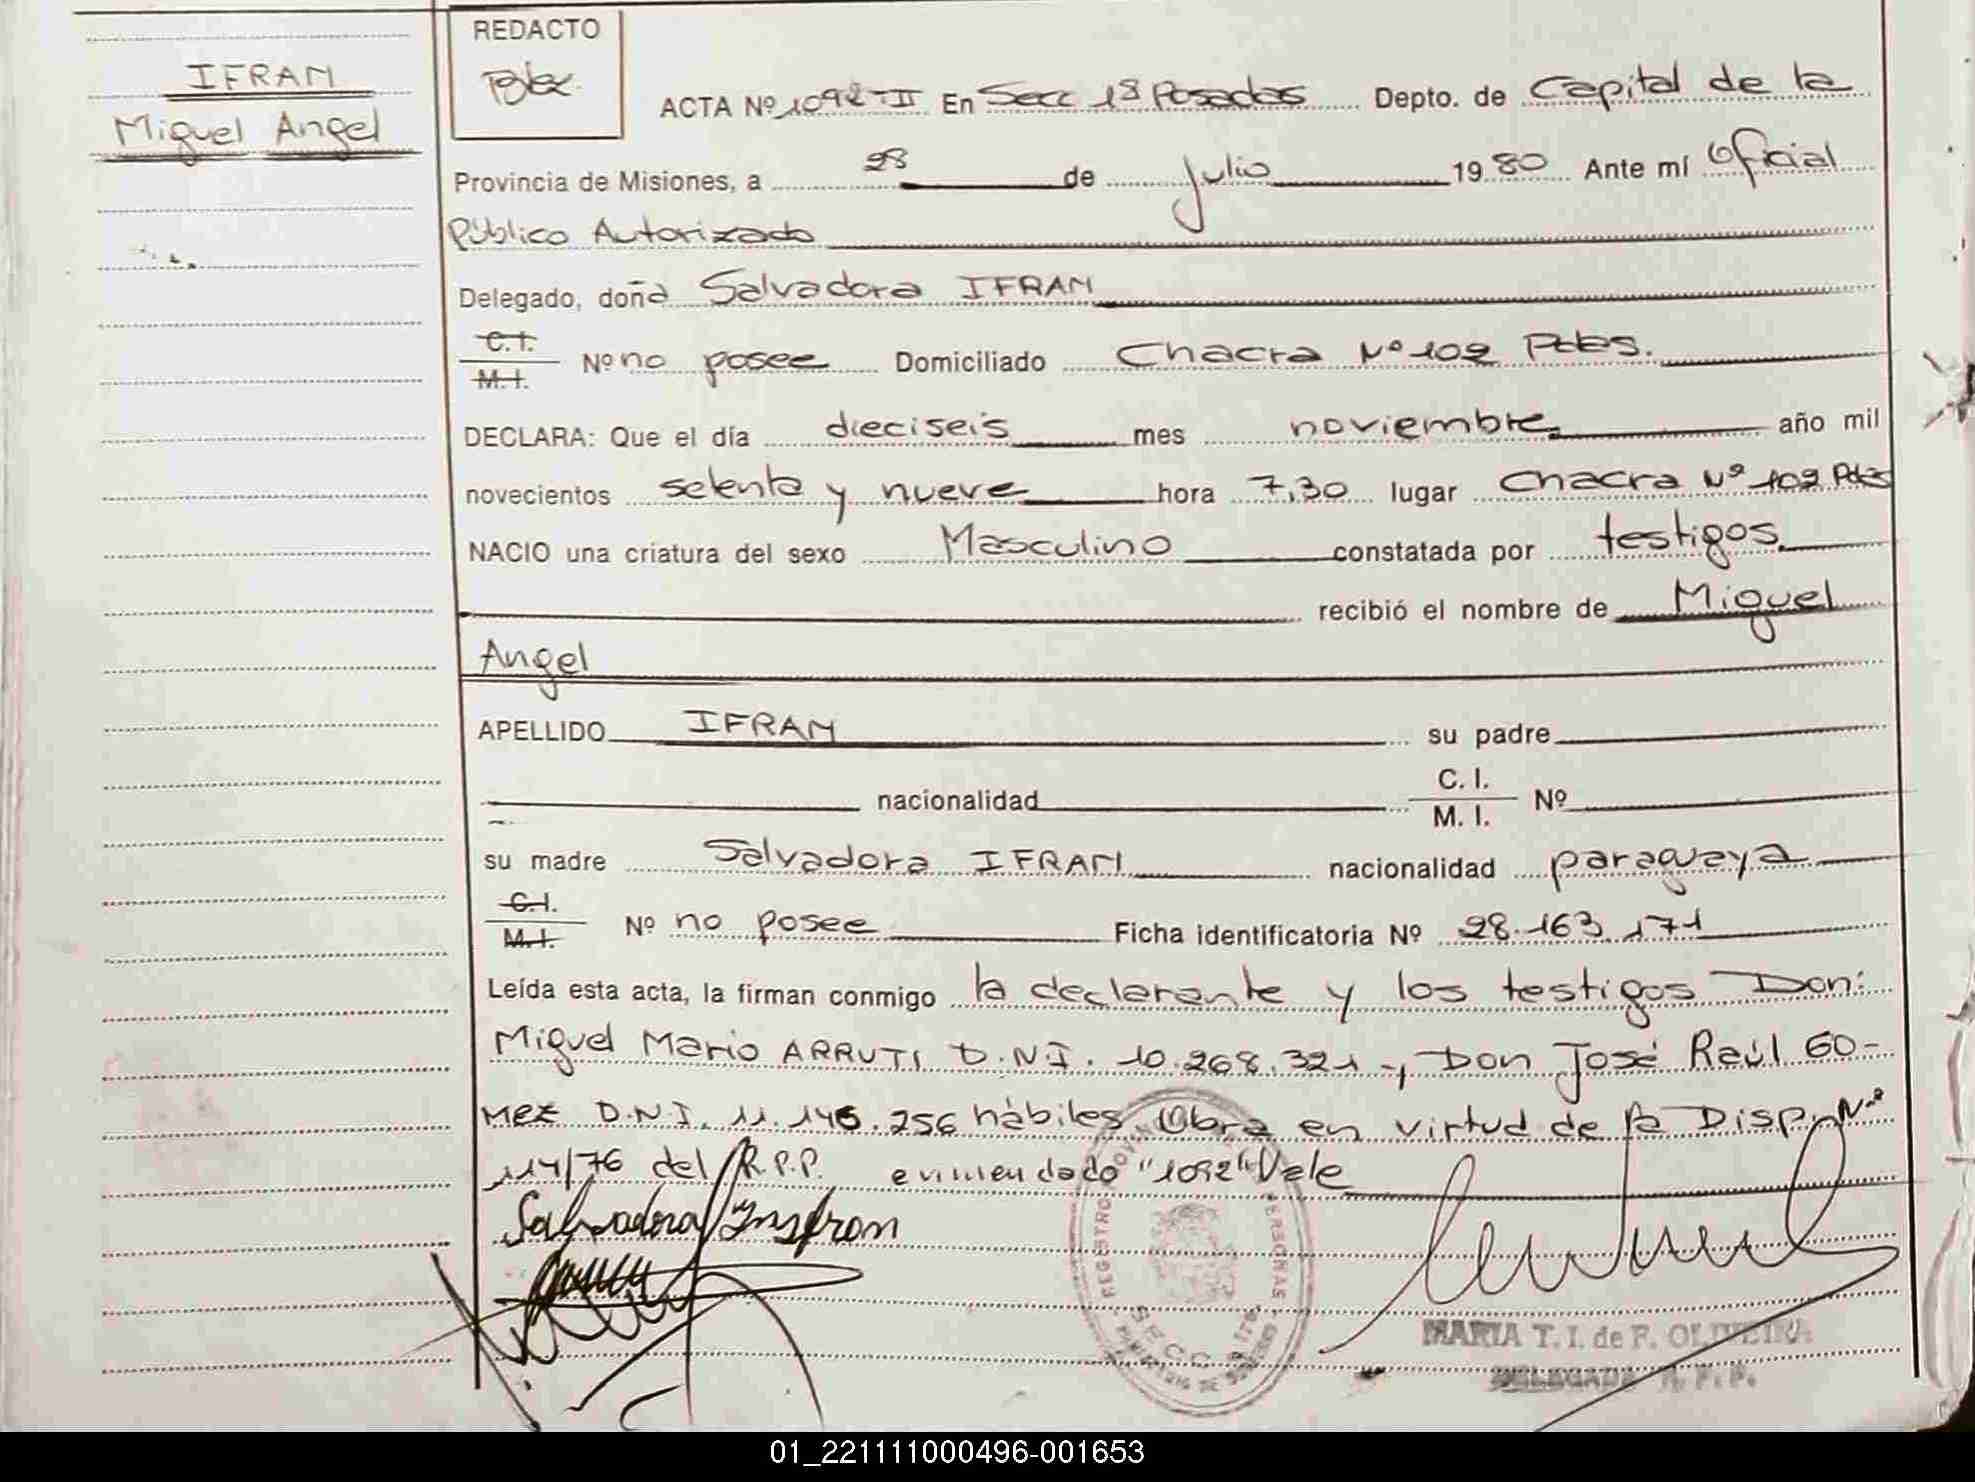 IFRAN
Miguel Angel
REDACTO
ACTA Nº 1092-II En Secc 1ª Posadas Depto. de Capital de la
Provincia de Misiones, a 28 de Julio 1980 Ante mí Oficial
Público Autorizado
Delegado, doña Salvadora IFRAN
C.I. M.I. Nº no posee Domiciliado Chacra Nº 102 Pdas.
DECLARA: Que el día dieciseis mes noviembre año mil
novecientos setenta y nueve hora 7,30 lugar Chacra Nº 102 Pdas
NACIO una criatura del sexo Masculino constatada por testigos.
recibió el nombre de Miguel
Angel
APELLIDO IFRAN su padre
nacionalidad C. I. M. I. Nº
su madre Salvadora IFRAN nacionalidad paraguaya
C.I. M.I. Nº no posee Ficha identificatoria Nº 28.163.171
Leída esta acta, la firman conmigo la declarante y los testigos Don:
Miguel Mario ARRUTI D.N.I. 10.268.321 y Don José Raúl GO-
MEZ D.N.I. 11.146.256 hábiles Obra en virtud de la Disp. Nº
114/76 del R.P.P. enmendado "1092" Vale
Salvadora Insfran
REGISTRO PERSONAS
SECC
MARIA T. I. de F. OLIVEIRA
DELEGADA R. P. P.
01_221111000496-001653